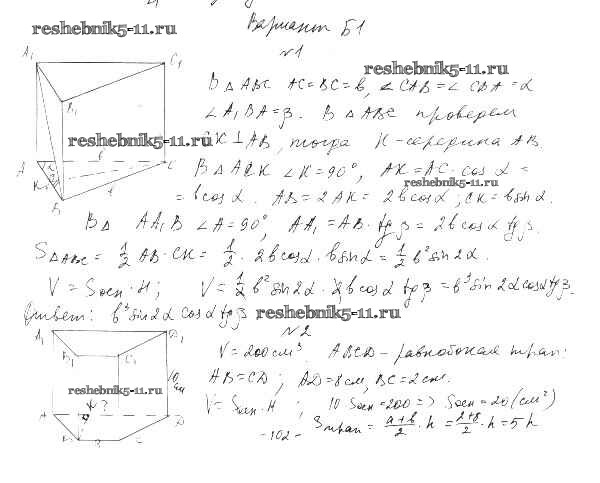 resheBnik5-11.ru
Вариант Б1
№1
A₁ C₁ B₁
resheBnik5-11.ru
В △ ABC AC=BC=b, ∠CAB=∠CBA=α
∠A₁BA=β. В △ ABC проведем
resheBnik5-11.ru
CK⊥AB, тогда K-середина AB.
A K B C b b
В △ ACK ∠K=90°, AK=AC·cos α =
resheBnik5-11.ru
= b cos α. AB=2AK= 2b cos α; CK=b sin α.
В △ AA₁B ∠A=90°, AA₁=AB·tg β = 2b cos α tg β.
S△ABC = 1/2 AB·CK = 1/2 · 2b cos α · b sin α = 1/2 b² sin 2α.
V = Sосн·H; V = 1/2 b² sin 2α · 2b cos α tg β = b³ sin 2α cos α tg β.
Ответ: b³ sin 2α cos α tg β
resheBnik5-11.ru
№2
A₁ D₁ B₁ C₁
V=200 см³. ABCD - равнобокая трап.:
10 см
AB=CD; AD=8 см, BC=2 см.
resheBnik5-11.ru
V=Sосн·H; 10·Sосн=200 => Sосн=20 (см²)
A ? D B C
Sтрап = (a+b)/2 · h = (2+8)/2 · h = 5h
-102-